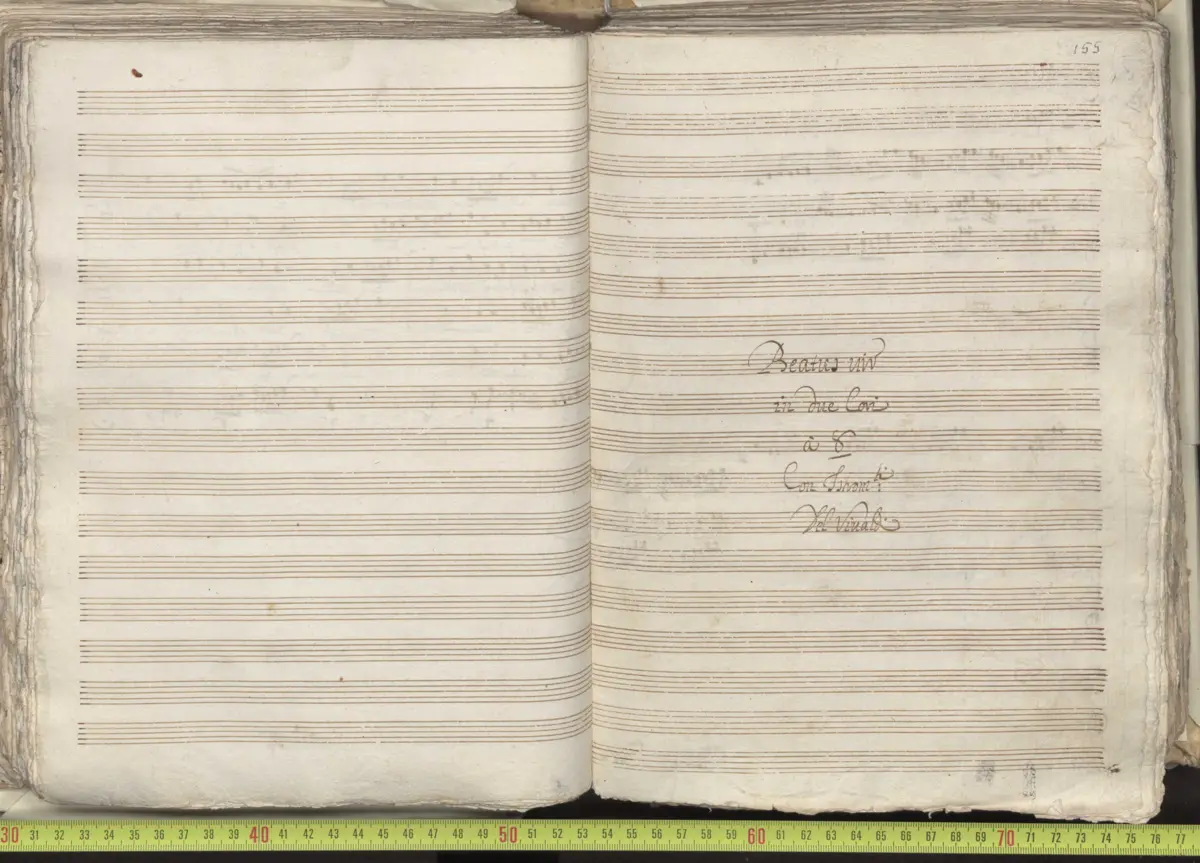 155
Beatus vir
in due Cori
à 8
Con Istromti
Del Viualdi
30 31 32 33 34 35 36 37 38 39 40 41 42 43 44 45 46 47 48 49 50 51 52 53 54 55 56 57 58 59 60 61 62 63 64 65 66 67 68 69 70 71 72 73 74 75 76 77